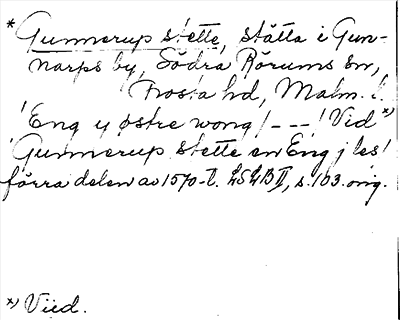 * Gunnerup stette, stätta i Gun-
narps by, Södra Rörums sn,
Frosta hd, Malm. l.
'Eng y østre wong / - - - ! Vid *)
'Gunnerup stette en Eng j les'
förra delen av 1570-t. LSLB II, s. 103. orig.
*) Viid.